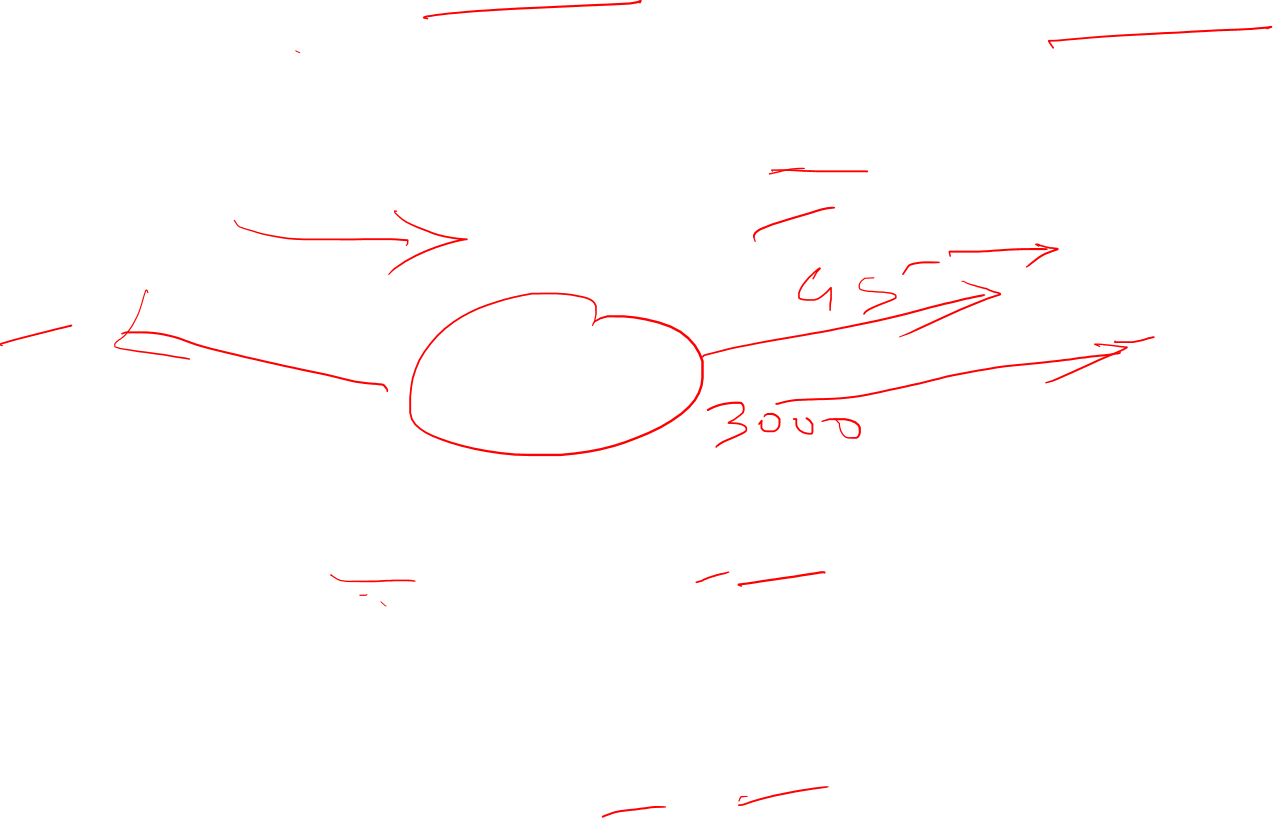 95
3000